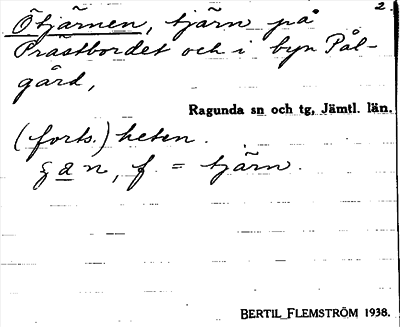 2.
Ötjärnen, tjärn på
Prästbordet och i byn Pål-
gård,
Ragunda sn och tg, Jämtl. län.
(forts.) heten.
f. = tjärn.
BERTIL FLEMSTRÖM 1938.